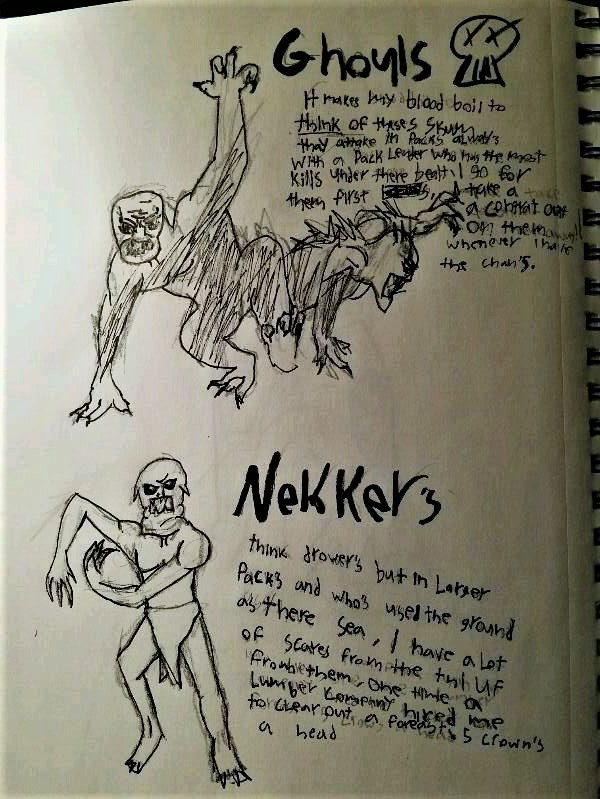 Ghouls
It makes my blood boil to
think of theses skum
they attake in Packs always
with a Pack Leader who has the most
kills under there bealt, I go for
them first I take a
on them
whenever I have
the chan's.
Nekker's
think drowner's but in Larger
Packs and who's used the ground
as there Sea, I have a Lot
of scares from the
from them, One time a
Lumber Company hired me
to clear out a foreast 5 Crown's
a head